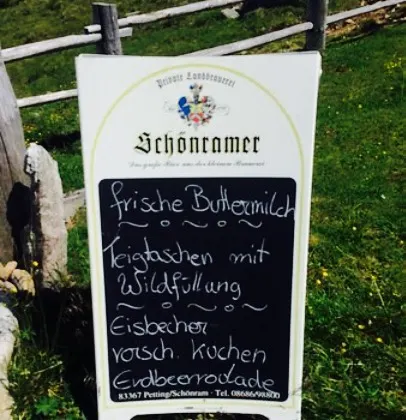 Private Landbrauerei
Schönramer
Das große Bier aus der kleinen Brauerei
frische Buttermilch
Teigtaschen mit
Wildfüllung
Eisbecher
versch. Kuchen
Erdbeerroulade
83367 Petting/Schönram - Tel. 08686/98800